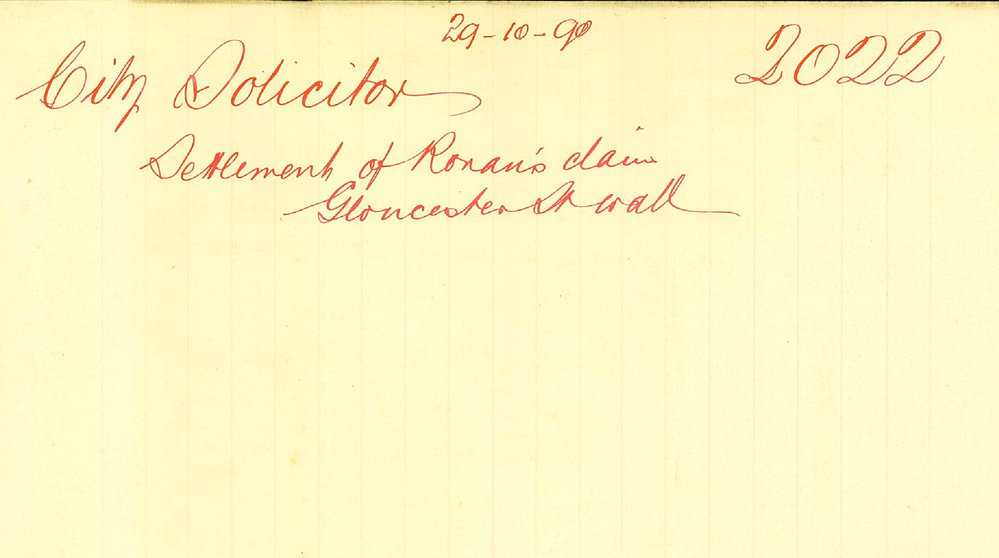 29-10-90
2022
City Solicitor
Settlement of Ronan's claim
Gloucester St wall